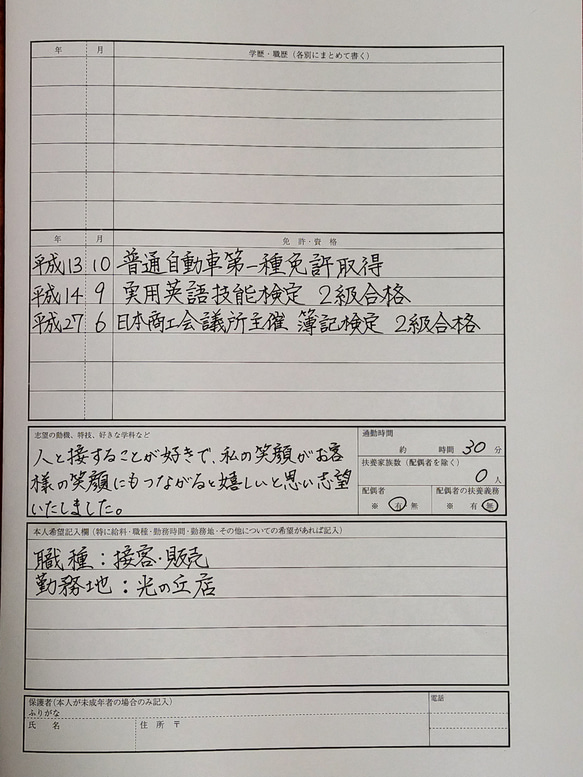 年 月 学歴・職歴（各別にまとめて書く）
年 月 免許・資格
平成13 10 普通自動車第一種免許取得
平成14 9 実用英語技能検定 2級合格
平成27 6 日本商工会議所主催 簿記検定 2級合格
志望の動機、特技、好きな学科など
人と接することが好きで、私の笑顔がお客
様の笑顔にもつながると嬉しいと思い志望
いたしました。
通勤時間
約 時間 30 分
扶養家族数（配偶者を除く）
0 人
配偶者 配偶者の扶養義務
※ 有 無 ※ 有 無
本人希望記入欄（特に給料・職種・勤務時間・勤務地・その他についての希望があれば記入）
職種：接客・販売
勤務地：光の丘店
保護者（本人が未成年者の場合のみ記入） 電話
ふりがな
氏 名 住 所 〒